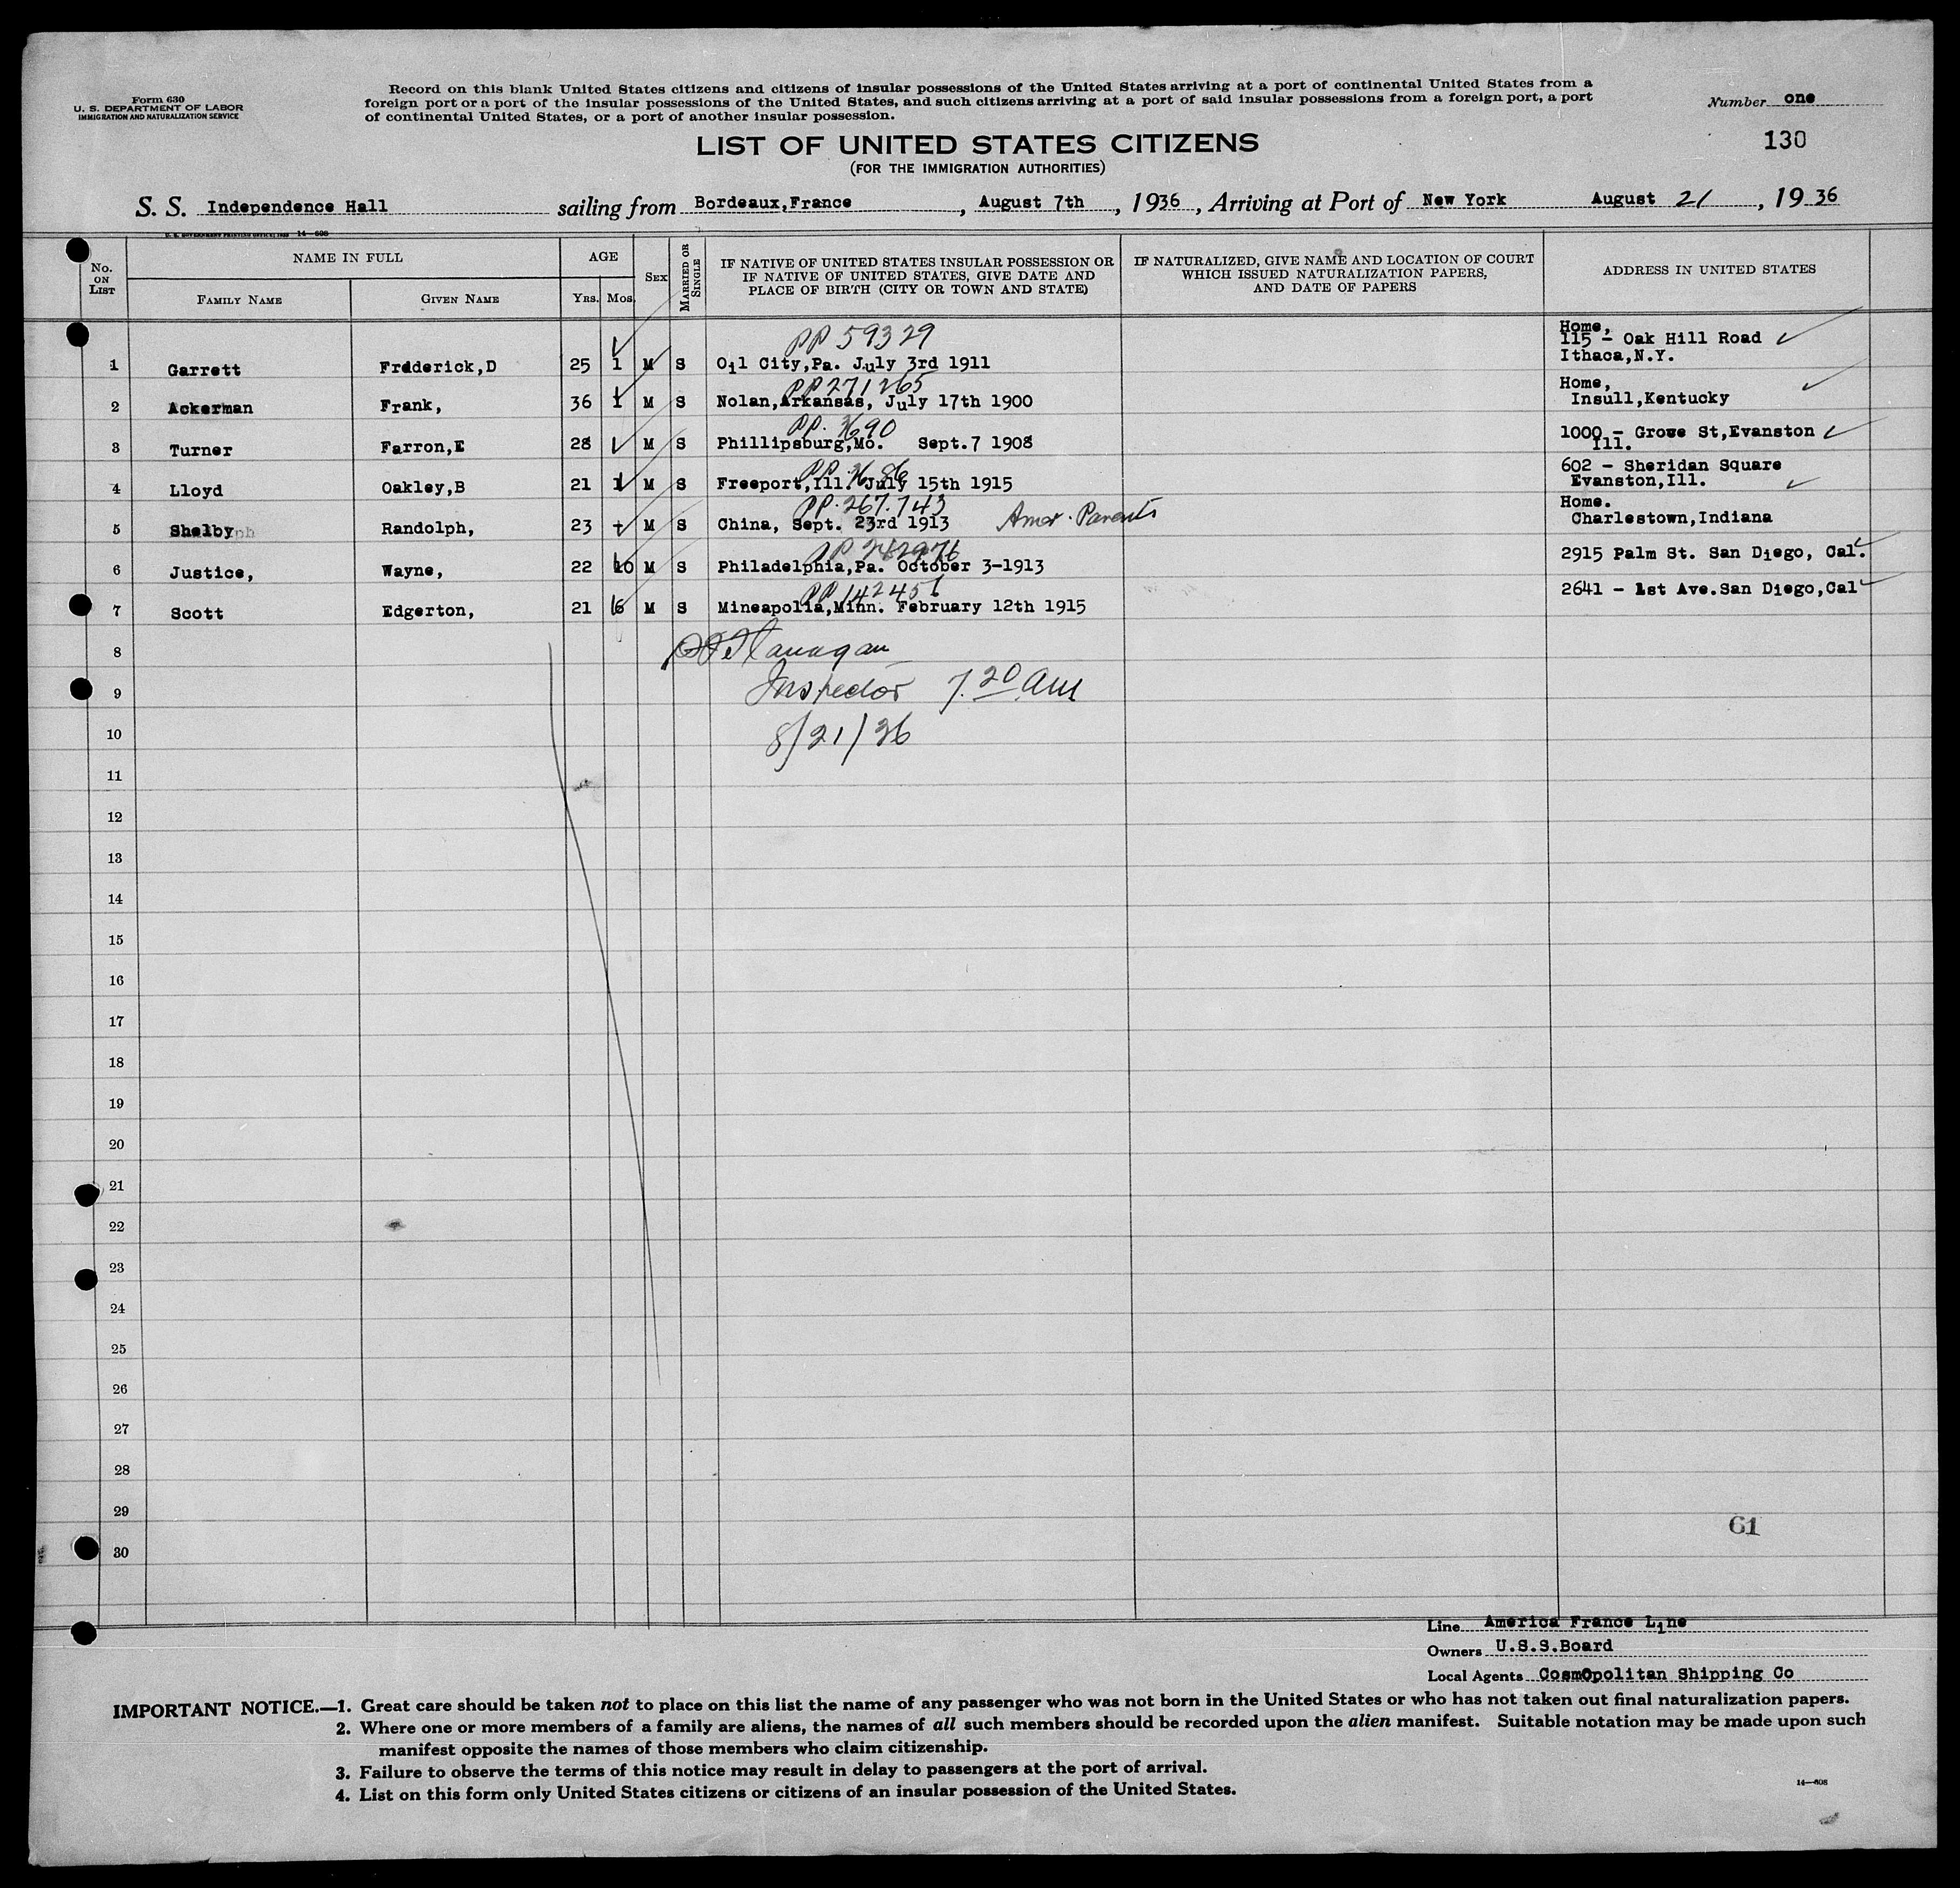 Form 630
U. S. DEPARTMENT OF LABOR
IMMIGRATION AND NATURALIZATION SERVICE
Record on this blank United States citizens and citizens of insular possessions of the United States arriving at a port of continental United States from a
foreign port or a port of the insular possessions of the United States, and such citizens arriving at a port of said insular possessions from a foreign port, a port
of continental United States, or a port of another insular possession.
Number one
130
LIST OF UNITED STATES CITIZENS
(FOR THE IMMIGRATION AUTHORITIES)
S. S. Independence Hall sailing from Bordeaux,France, August 7th, 1936, Arriving at Port of New York August 21, 1936
U. S. GOVERNMENT PRINTING OFFICE: 1933 14—608
No. ON LIST
NAME IN FULL
FAMILY NAME
GIVEN NAME
AGE
YRS. MOS.
SEX
MARRIED OR SINGLE
IF NATIVE OF UNITED STATES INSULAR POSSESSION OR
IF NATIVE OF UNITED STATES, GIVE DATE AND
PLACE OF BIRTH (CITY OR TOWN AND STATE)
IF NATURALIZED, GIVE NAME AND LOCATION OF COURT
WHICH ISSUED NATURALIZATION PAPERS,
AND DATE OF PAPERS
ADDRESS IN UNITED STATES
PP 59329
Home,
115 - Oak Hill Road
1 Garrett Frederick,D 25 1 M S Oil City,Pa. July 3rd 1911 Ithaca,N.Y.
PP 271265
Home,
2 Ackerman Frank, 36 1 M S Nolan,Arkansas, July 17th 1900 Insull,Kentucky
PP.
1000 - Grove St,Evanston
3 Turner Farron,E 28 M S Phillipsburg,Mo. Sept.7 1908 Ill.
PP.
602 - Sheridan Square
4 Lloyd Oakley,B 21 1 M S Freeport,Ill. July 15th 1915 Evanston,Ill.
PP.267.743
Home.
5 Shelby Randolph, 23 M S China, Sept. 23rd 1913 Amer. Parents Charlestown,Indiana
PP 242976
6 Justice, Wayne, 22 10 M S Philadelphia,Pa. October 3-1913 2915 Palm St. San Diego, Cal.
PP 142456
7 Scott Edgerton, 21 6 M S Mineapolia,Minn. February 12th 1915 2641 - 1st Ave.San Diego,Cal
8 Flanagan
9 Inspector 7.20 am
10 8/21/36
11
12
13
14
15
16
17
18
19
20
21
22
23
24
25
26
27
28
29
61
30
Line America France Line
Owners U.S.S.Board
Local Agents Cosmopolitan Shipping Co
IMPORTANT NOTICE.—1. Great care should be taken not to place on this list the name of any passenger who was not born in the United States or who has not taken out final naturalization papers.
2. Where one or more members of a family are aliens, the names of all such members should be recorded upon the alien manifest. Suitable notation may be made upon such
manifest opposite the names of those members who claim citizenship.
3. Failure to observe the terms of this notice may result in delay to passengers at the port of arrival.
4. List on this form only United States citizens or citizens of an insular possession of the United States.
14—608